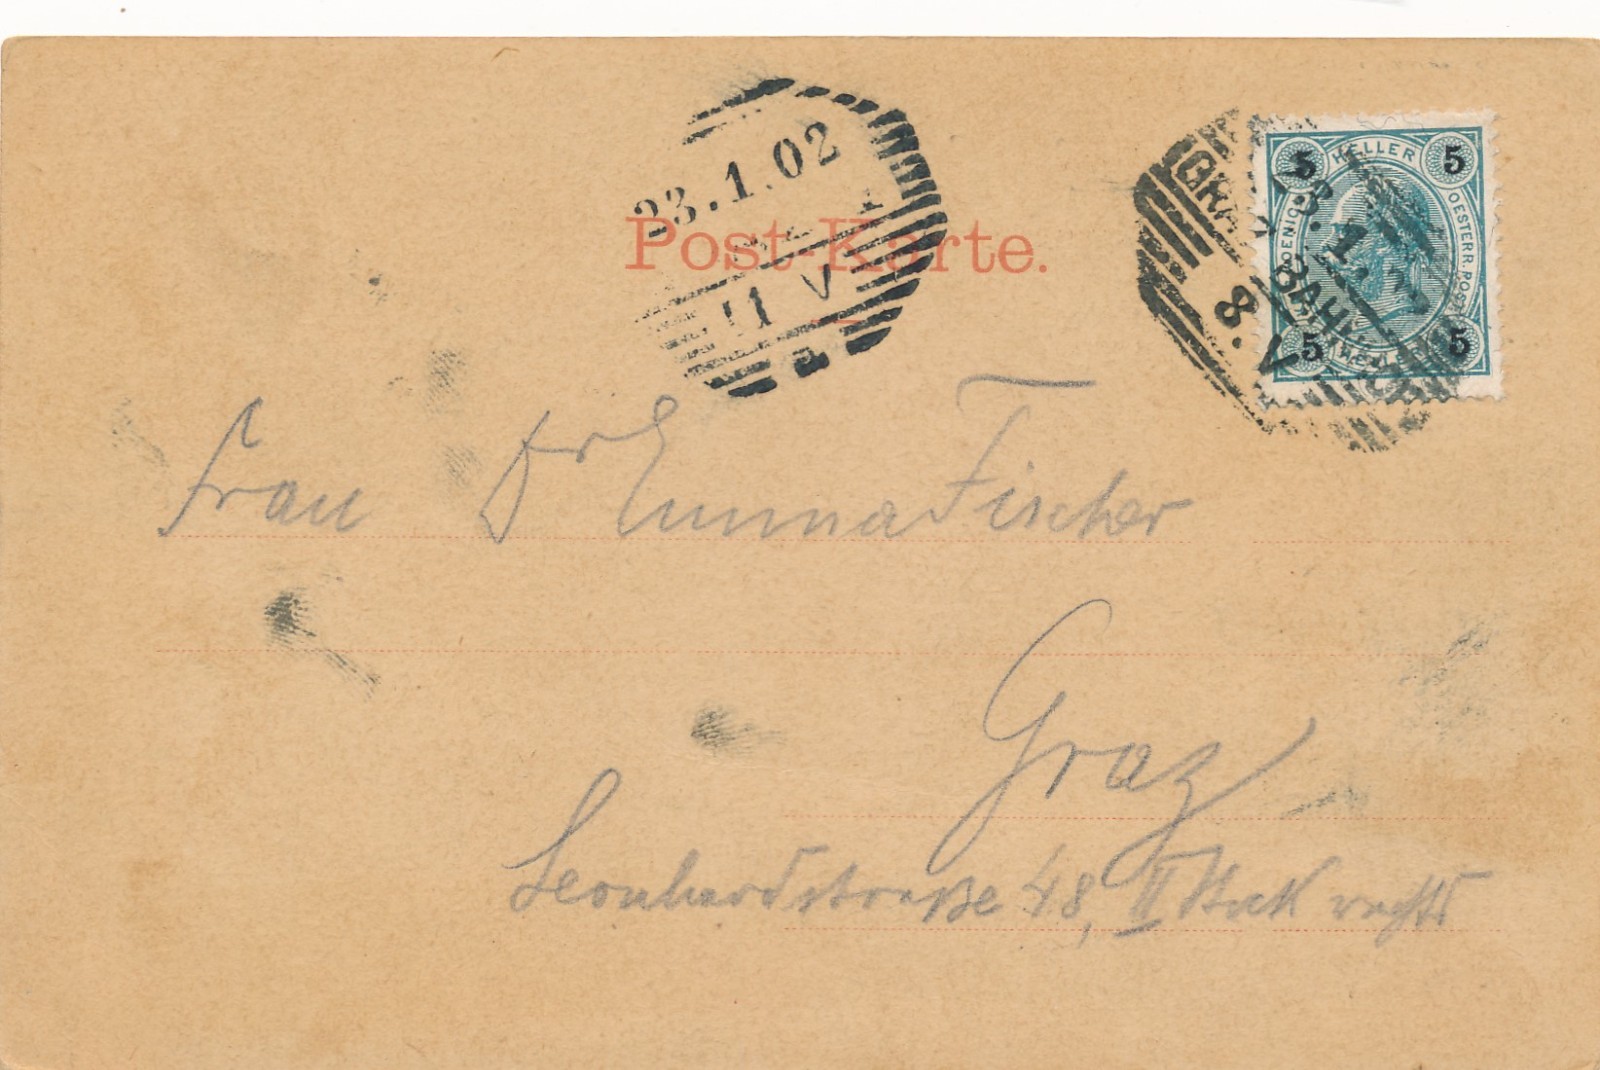 23.1.02
11 V
Post-Karte.
5 HELLER 5
OESTERR. POST
5 5
8.V
Frau Dr Emma Fischer
Graz
Leonhardstraße 48, II Stock rechts